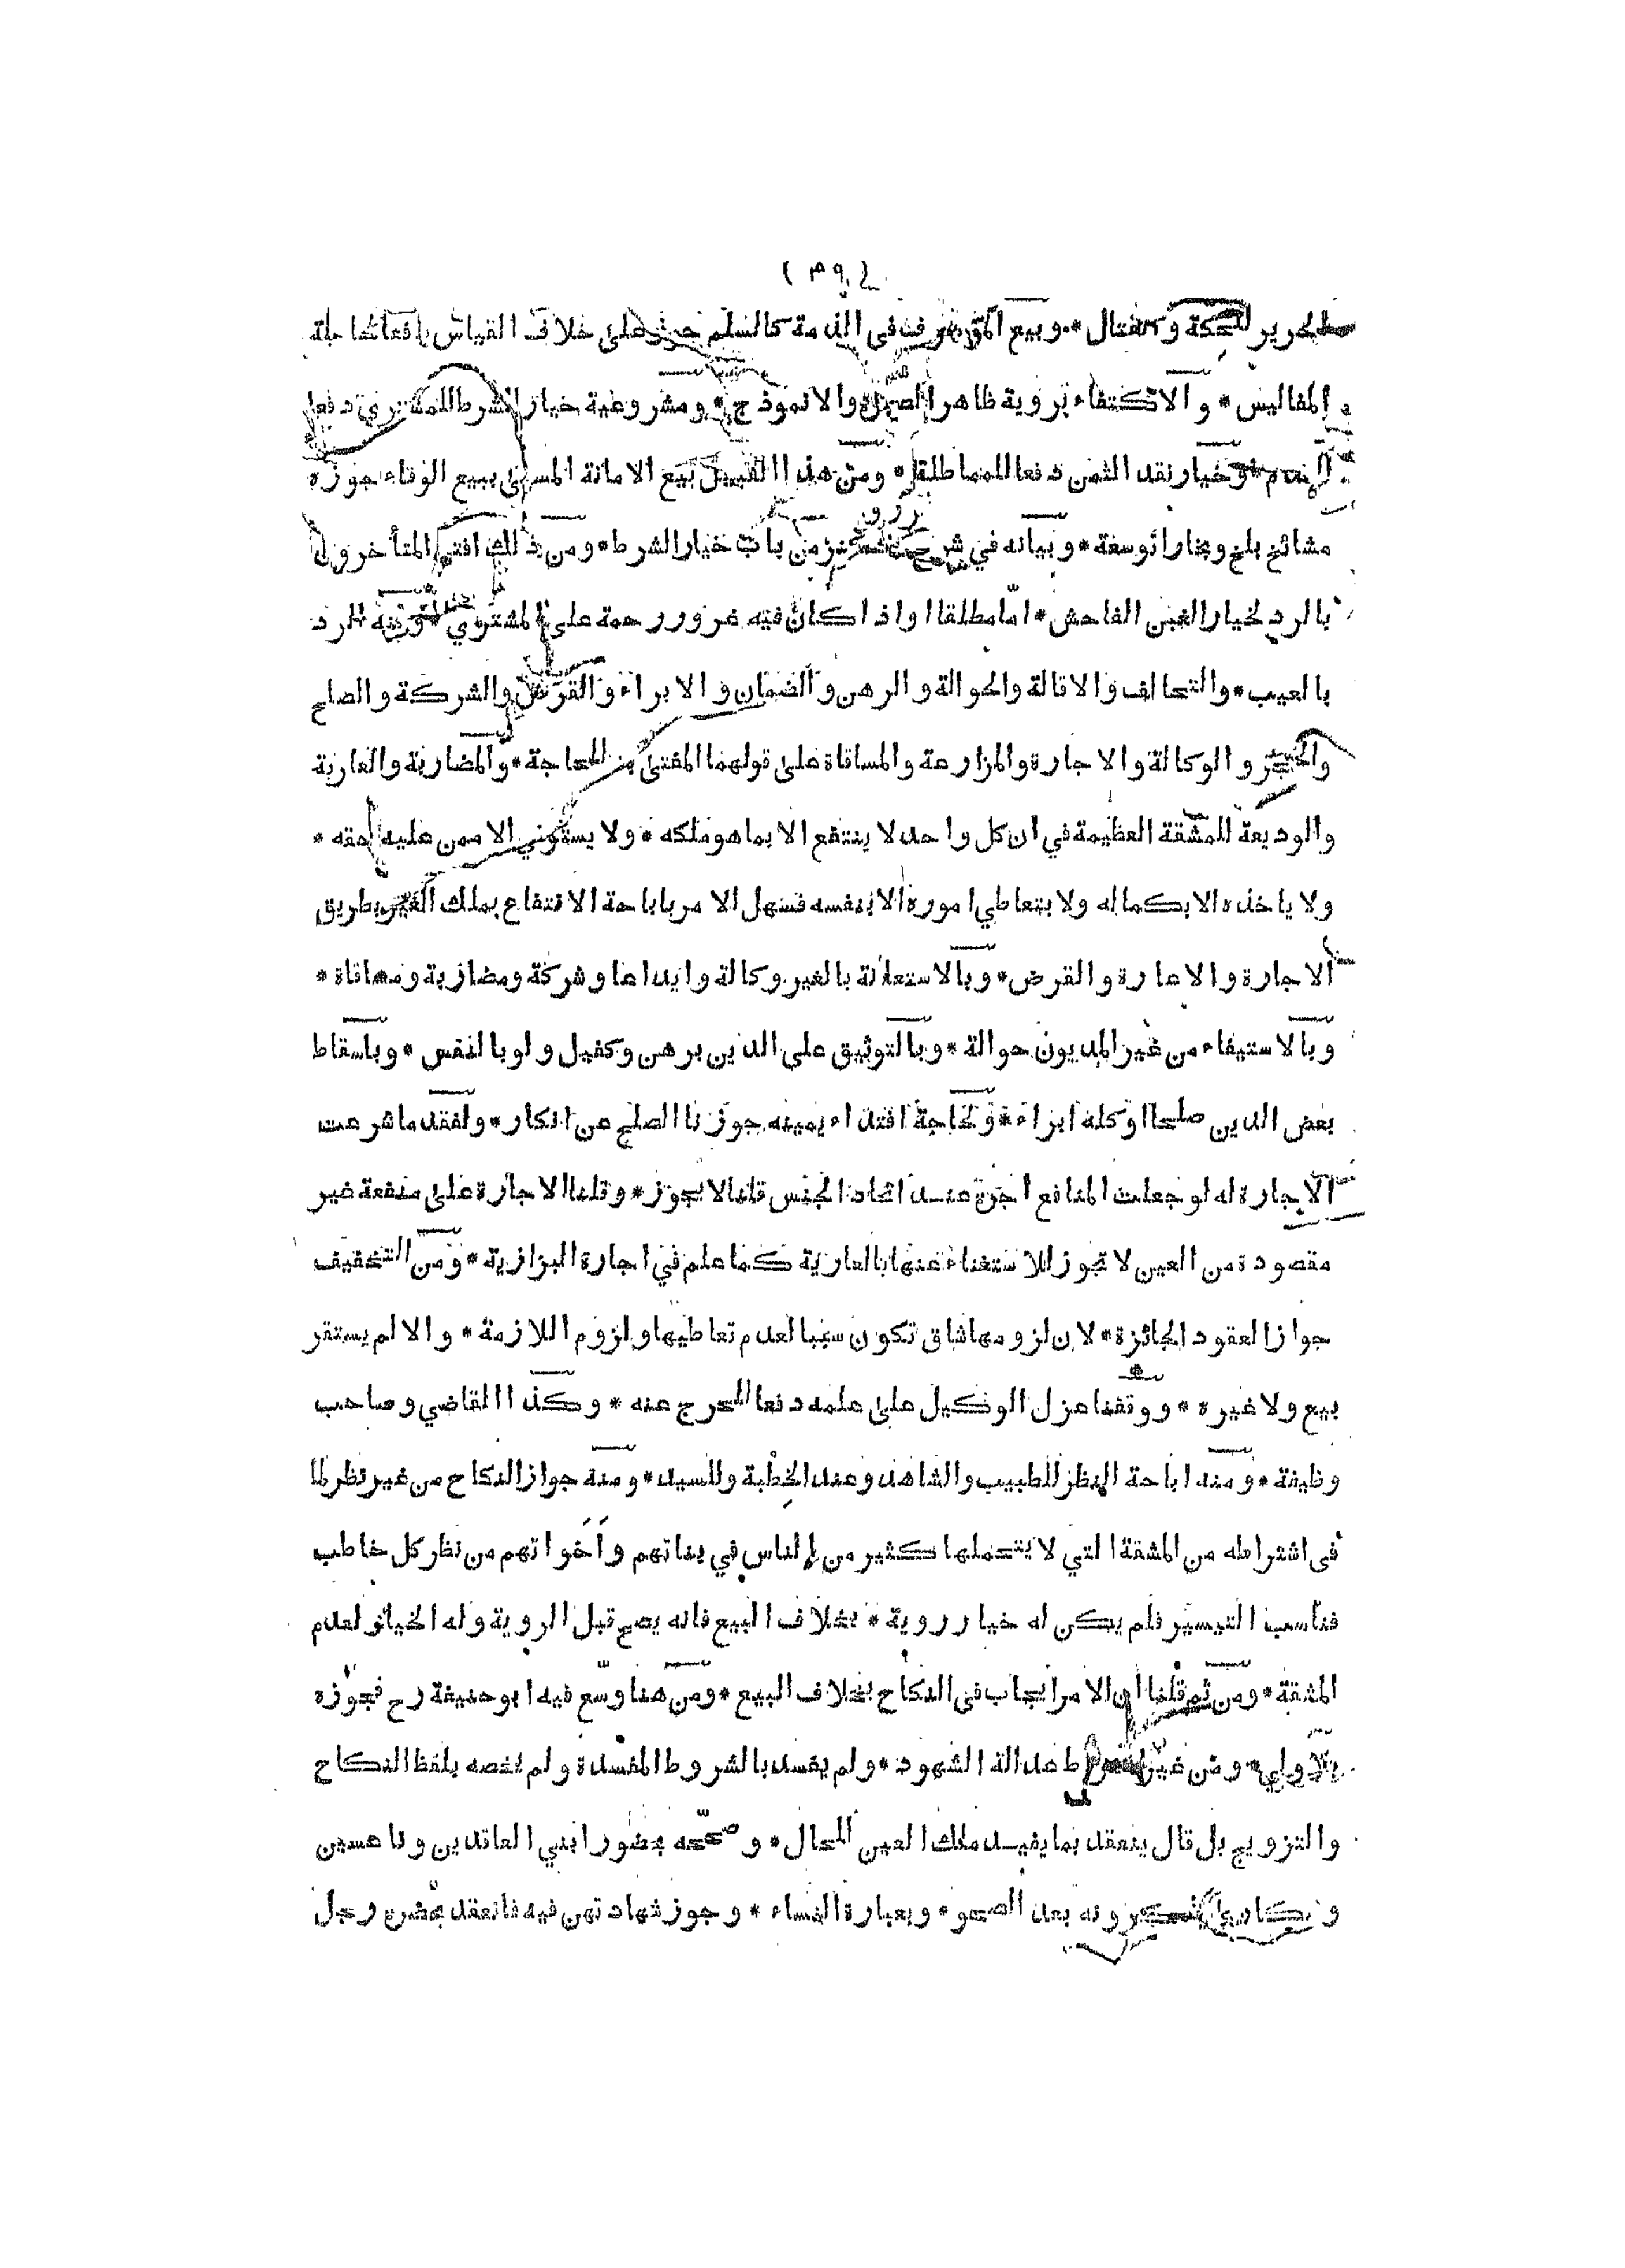 ( ٣٩ )
الحرير للحكة والقتال * وبيع الموصوف في الذمة كالسلم جوز على خلاف القياس دفعا لحاجة
المفاليس * والاكتفاء بروية ظاهر الصبرة والانموذج * ومشروعية خيار الشرط للمشتري دفعا
للندم * وخيار نقد الثمن دفعا للمماطلة * ومن هذا القبيل بيع الامانة المسمى ببيع الوفاء جوزه
مشائخ بلخ وبخارا توسعة * وبيانه في شرح الكنز من باب خيار الشرط * ومن ذلك افتى المتأخرون
بالرد لخيار الغبن الفاحش * امّا مطلقا او اذا كان فيه غرور رحمة على المشتري * ومنه الرد
بالعيب * والتحالف والاقالة والحوالة والرهن والضمان والابراء والقرض والشركة والصلح
والحجر والوكالة والاجارة والمزارعة والمساقاة على قولهما المفتى به للحاجة * والمضاربة والعارية
والوديعة للمشقة العظيمة في ان كل واحد لا ينتفع الا بما هو ملكه * ولا يستوفي الا ممن عليه حقه *
ولا ياخذه الا بكماله ولا يتعاطي اموره الا بنفسه فسهل الامر باباحة الانتفاع بملك الغير بطريق
الاجارة والاعارة والقرض * وبالاستعانة بالغير وكالة وايداعا وشركة ومضاربة ومساقاة *
وبالاستيفاء من غير المديون حوالة * وبالتوثيق على الدين برهن وكفيل ولو بالنفس * وباسقاط
بعض الدين صلحا او كله ابراء * ولحاجة افتداء يمينه جوزنا الصلح عن انكار * ولفقد ما شرعت
الاجارة له لو جعلت المنافع اجرة عند اتحاد الجنس قلنا لا يجوز * وقلنا الاجارة على منفعة غير
مقصودة من العين لا تجوز للاستغناء عنها بالعارية كما علم في اجارة البزازية * ومن التخفيف
جواز العقود الجائزة * لان لزومها شاق تكون سببا لعدم تعاطيها ولزوم اللازمة * والا لم يستقر
بيع ولا غيره * ووقفنا عزل الوكيل على علمه دفعا للحرج عنه * وكذا القاضي وصاحب
وظيفة * ومنه اباحة النظر للطبيب والشاهد وعند الخِطبة وللسيد * ومنه جواز النكاح من غير نظر لما
في اشتراطه من المشقة التي لا يتحملها كثير من الناس في بناتهم وأخواتهم من نظر كل خاطب
فناسب التيسير فلم يكن له خيار روية * بخلاف البيع فانه يصح قبل الروية وله الخيار لعدم
المشقة * ومن ثم قلنا ان الامر ايجاب في النكاح بخلاف البيع * ومن هنا وسّع فيه ابو حنيفة رح فجوزه
بلا ولي * ومن غير اشتراط عدالة الشهود * ولم يفسد بالشروط المفسدة ولم يخصه بلفظ النكاح
والتزويج بل قال ينعقد بما يفيد ملك العين للحال * وصحّحه بحضور ابني العاقدين وناعسين
وسكارى يذكرونه بعد الصحو * وبعبارة النساء * وجوز شهادتهن فيه فانعقد بحضرة رجل